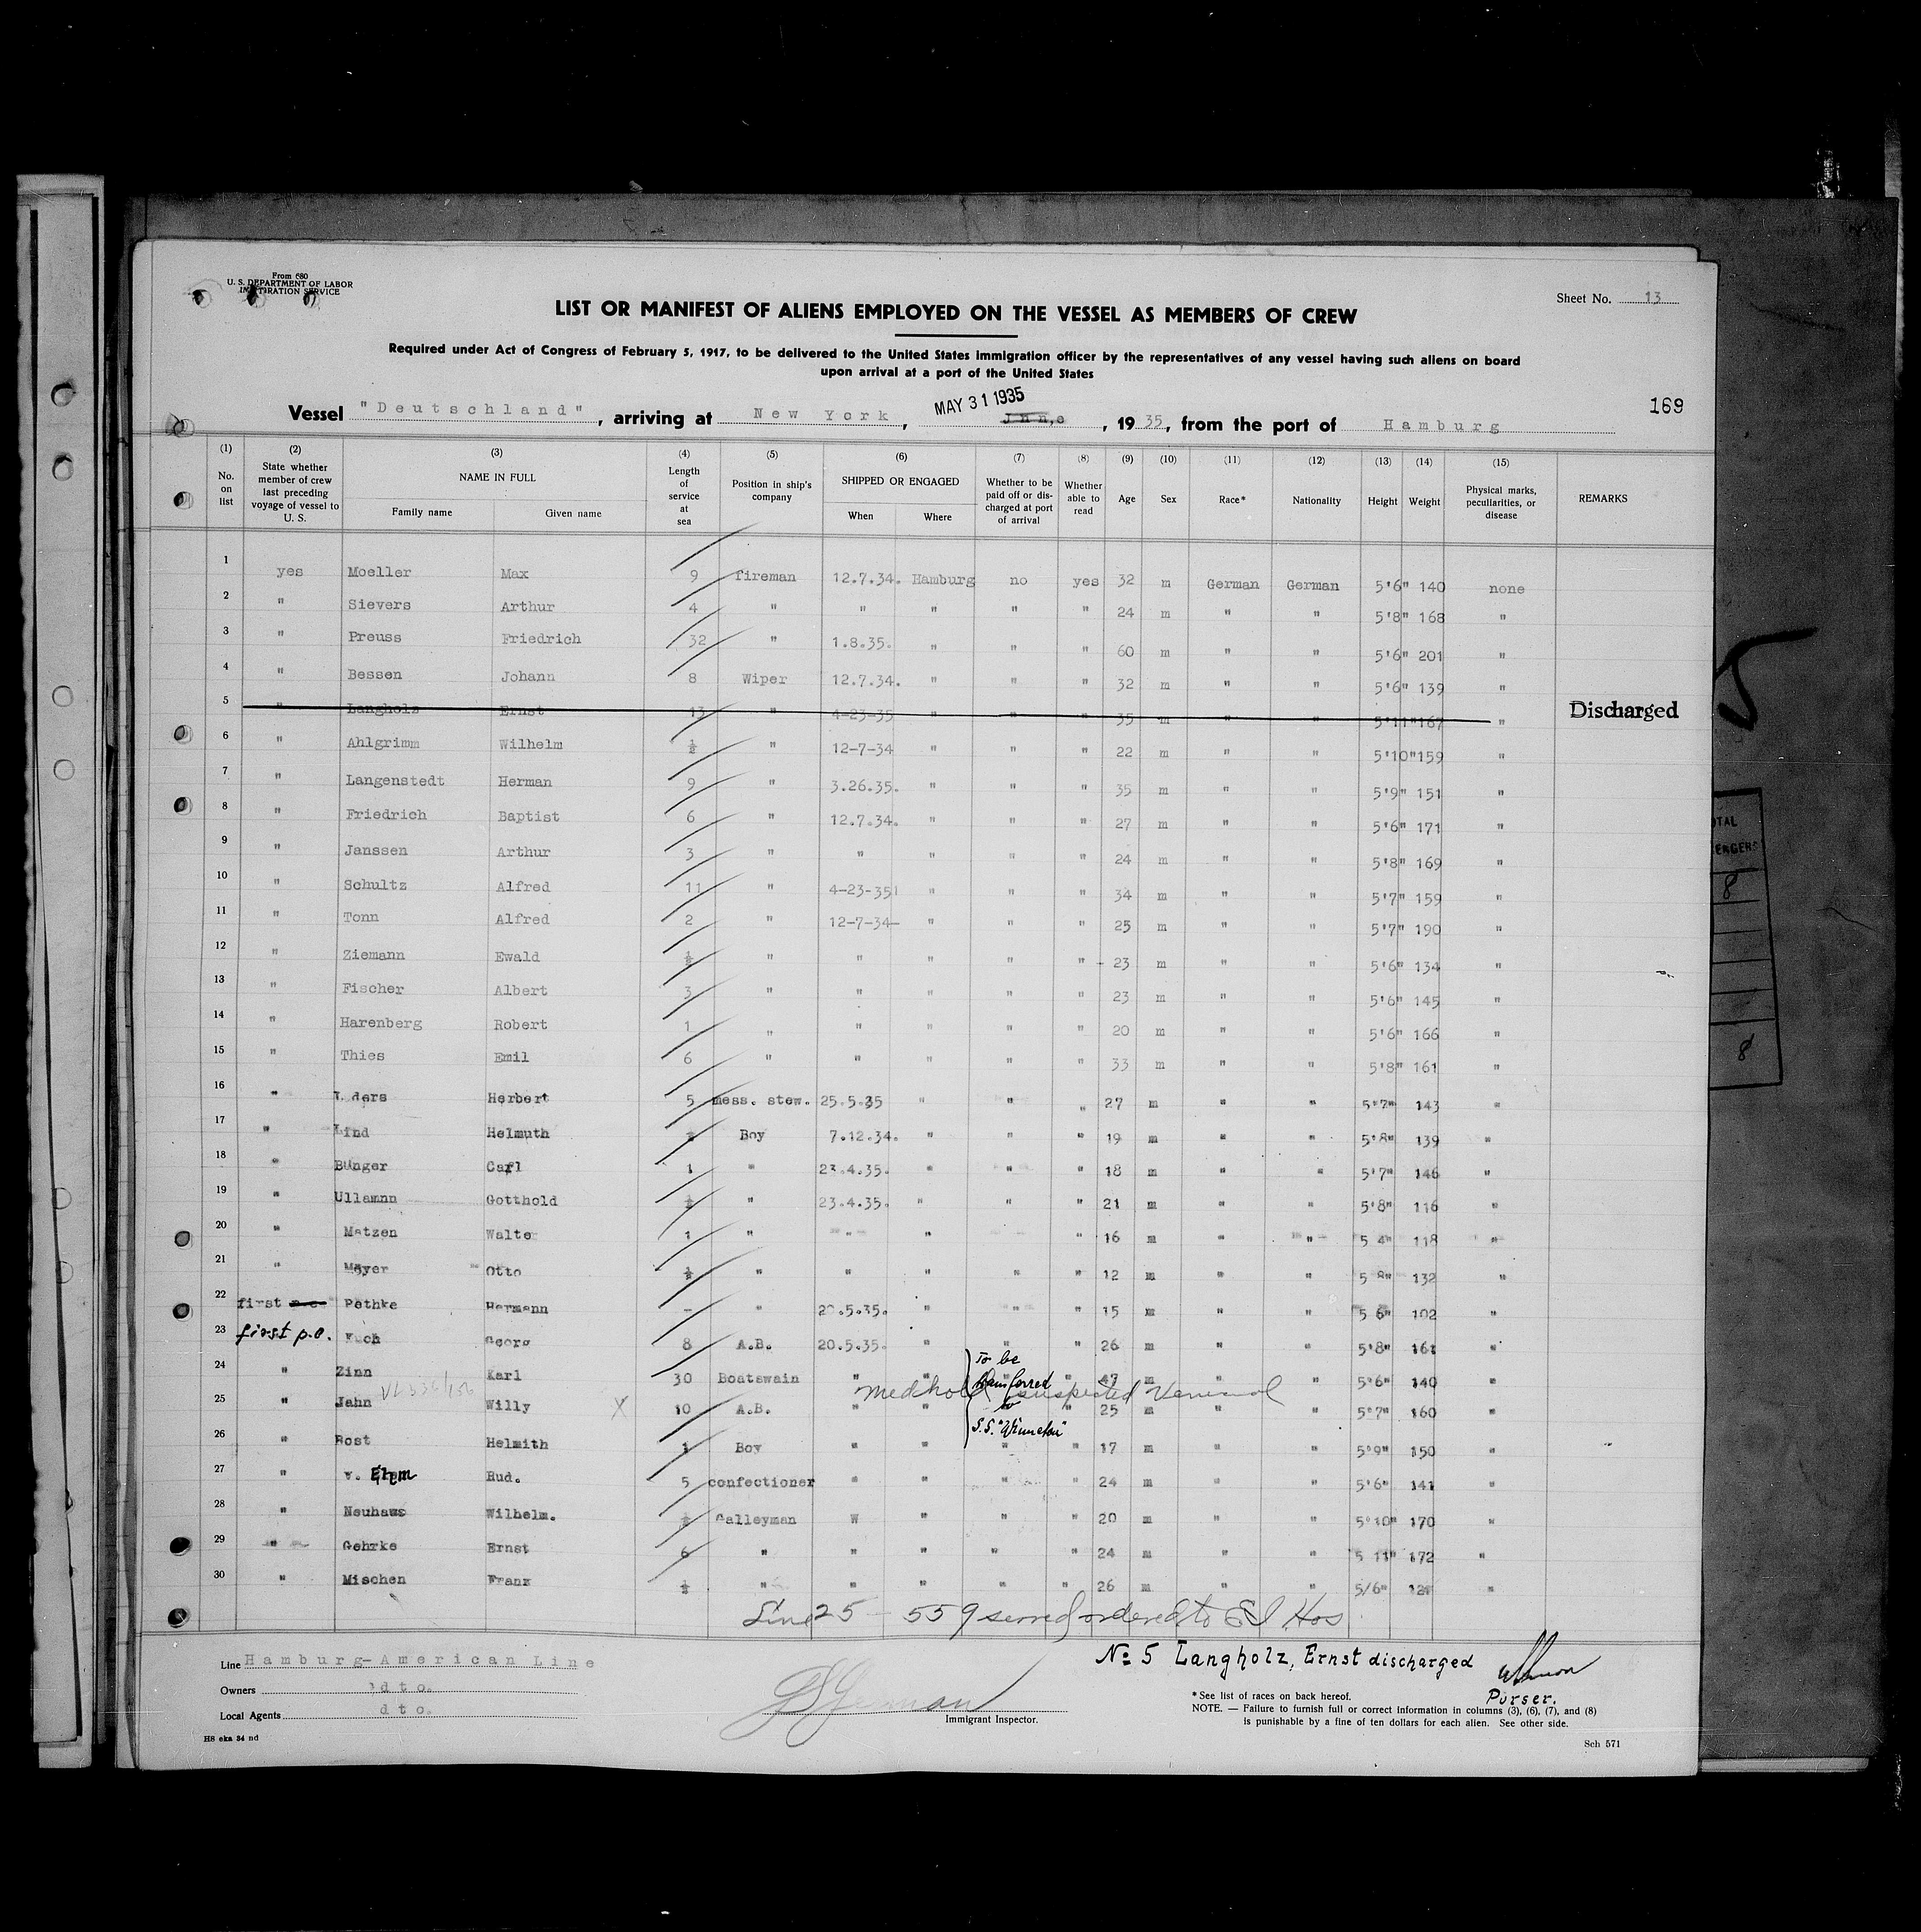 From 680
U. S. DEPARTMENT OF LABOR
IMMIGRATION SERVICE
Sheet No. 13
LIST OR MANIFEST OF ALIENS EMPLOYED ON THE VESSEL AS MEMBERS OF CREW
Required under Act of Congress of February 5, 1917, to be delivered to the United States immigration officer by the representatives of any vessel having such aliens on board
upon arrival at a port of the United States
169
Vessel "Deutschland", arriving at New York, MAY 31 1935 , 19 35, from the port of Hamburg
(1) No. on list (2) State whether member of crew last preceding voyage of vessel to U. S. (3) NAME IN FULL Family name Given name (4) Length of service at sea (5) Position in ship's company (6) SHIPPED OR ENGAGED When Where (7) Whether to be paid off or dis-charged at port of arrival (8) Whether able to read (9) Age (10) Sex (11) Race* (12) Nationality (13) Height (14) Weight (15) Physical marks, peculiarities, or disease REMARKS
1 yes Moeller Max 9 fireman 12.7.34. Hamburg no yes 32 m German German 5'6" 140 none
2 " Sievers Arthur 4 " " " " " 24 m " " 5'8" 168 "
3 " Preuss Friedrich 32 " 1.8.35. " " " 60 m " " 5'6" 201 "
4 " Bessen Johann 8 Wiper 12.7.34. " " " 32 m " " 5'6" 139 "
5 " Langholz Ernst 13 " 4-23-35 " " " 35 m " " 5'11" 167 " Discharged
6 " Ahlgrimm Wilhelm ½ " 12-7-34 " " " 22 m " " 5'10" 159 "
7 " Langenstedt Herman 9 " 3.26.35. " " " 35 m " " 5'9" 151 "
8 " Friedrich Baptist 6 " 12.7.34. " " " 27 m " " 5'6" 171 "
9 " Janssen Arthur 3 " " " " " 24 m " " 5'8" 169 "
10 " Schultz Alfred 11 " 4-23-35 " " " 34 m " " 5'7" 159 "
11 " Tonn Alfred 2 " 12-7-34- " " " 25 m " " 5'7" 190 "
12 " Ziemann Ewald ½ " " " " " 23 m " " 5'6" 134 "
13 " Fischer Albert 3 " " " " " 23 m " " 5'6" 145 "
14 " Harenberg Robert 1 " " " " " 20 m " " 5'6" 166 "
15 " Thies Emil 6 " " " " " 33 m " " 5'8" 161 "
16 " Herbert 5 mess. stew. 25.5.35 " " " 27 m " " 5'7" 143 "
17 " Lind Helmuth Boy 7.12.34. " " " 19 m " " 5'8" 139 "
18 " Bünger Carl 1 " 23.4.35. " " " 18 m " " 5'7" 146 "
19 " Ullamnn Gotthold ½ " 23.4.35. " " " 21 m " " 5'8" 116 "
20 " Matzen Walter 1 " " " " 16 m " " 5 4" 118 "
21 " Meyer Otto ½ " " " " " 12 m " " 5 8" 132 "
22 first Pethke Hermann - " 20.5.35. " " " 15 m " " 5 6" 102 "
23 first p.o. Georg 8 A.B. 20.5.35. " " " 26 m " " 5'8" 161 "
To be
24 " Zinn Karl 30 Boatswain " " transferred " 47 m " " 5'6" 140 "
medhold suspected Venereal
25 " Jahn Willy X 10 A.B. " " to 25 m " " 5'7" 160 "
S.S.
26 " Rost Helmith 1 Boy " " " 17 m " " 5'9" 150 "
27 " v. Elem Rud. 5 confectioner " " " " 24 m " " 5'6" 141 "
28 " Neuhaus Wilhelm. ½ Galleyman " " " " 20 m " " 5'10" 170 "
29 " Gehrke Ernst 6 " " " " " 24 m " " 5 11" 172 "
30 " Mischen Franz ½ " " " " " 26 m " " 5/6" "
Line 25 - 559 served ordered to E I Hos
Line Hamburg-American Line
Owners dto.
Local Agents dto.
H8 eka 34 nd
Immigrant Inspector.
No 5 Langholz, Ernst discharged
Purser.
*See list of races on back hereof.
NOTE. — Failure to furnish full or correct information in columns (3), (6), (7), and (8)
is punishable by a fine of ten dollars for each alien. See other side.
Sch 571
8
8